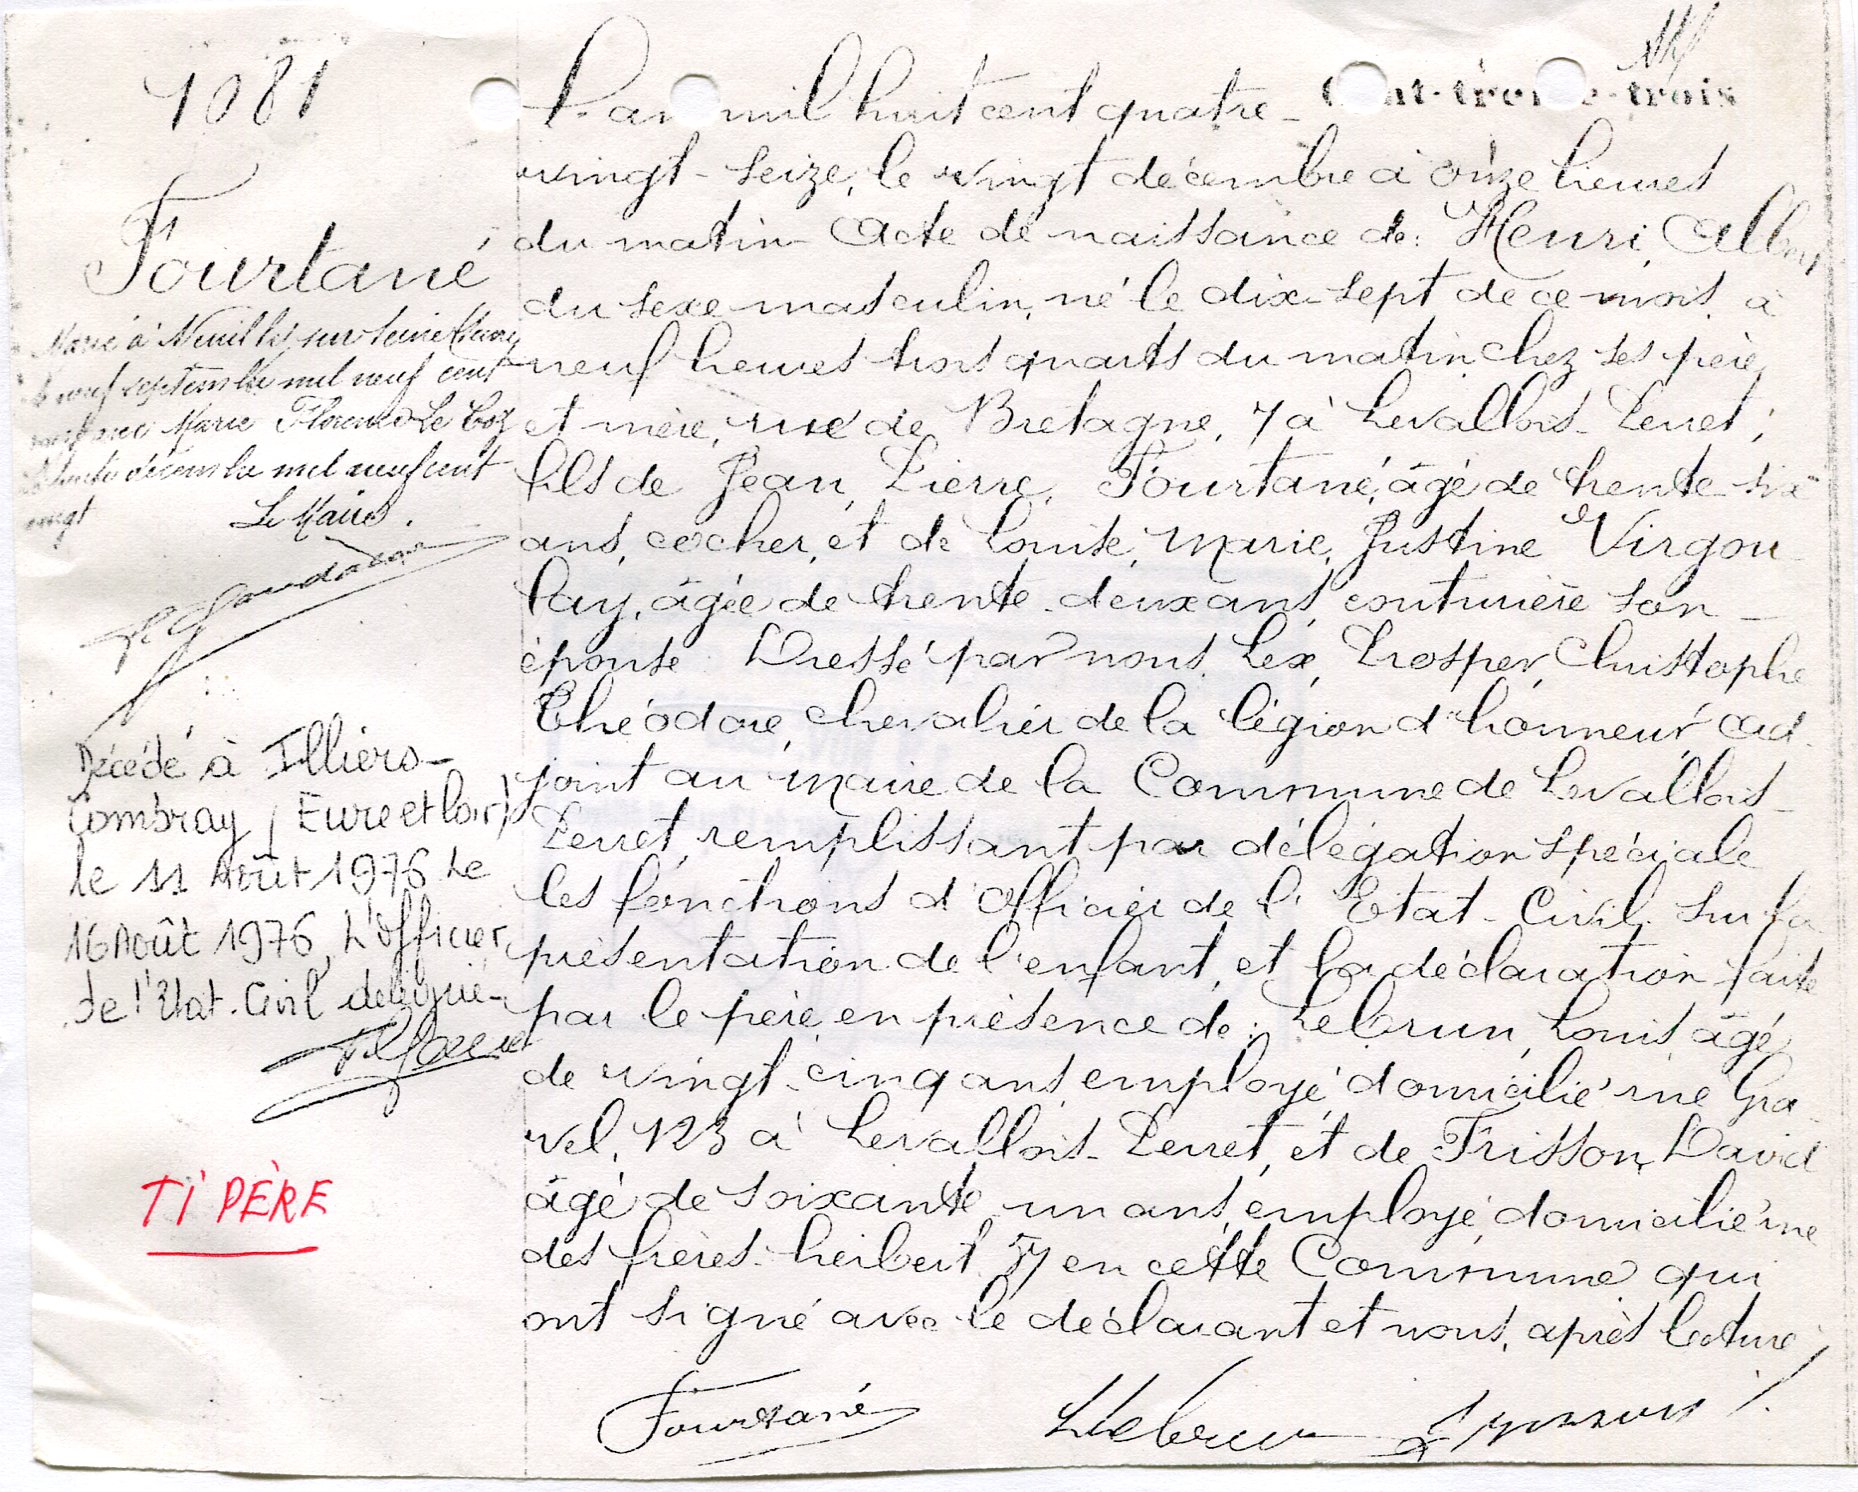 1081
Cent-trente-trois
Fourtané
Marié à Neuilly sur Seine (Seine)
le neuf septembre mil neuf cent
avec Marie Florence Le Coz
décembre mil neuf cent
vingt
Le Maire.
Décédé à Illiers-
Combray (Eure et Loir)
le 11 Août 1976 Le
16 Août 1976, L'officier
de l'Etat-Civil délégué-
TI PÈRE
L'an mil huit cent quatre-
vingt-seize, le vingt décembre à onze heures
du matin Acte de naissance de: Henri, Albert
du sexe masculin, né le dix-sept de ce mois, à
neuf heures trois quarts du matin chez ses père
et mère, rue de Bretagne, 7 à Levallois-Perret;
fils de Jean, Pierre, Fourtané, âgé de trente-six
ans, cocher, et de Louise, Marie, Justine Virgou
lay, âgée de trente-deux ans, couturière son
épouse Dressé par nous, Lex, Prosper, Christophe
Théodore, chevalier de la légion d'honneur ad-
joint au maire de la Commune de Levallois-
Perret, remplissant par délégation spéciale
les fonctions d'Officier de l'Etat-Civil, sur la
présentation de l'enfant, et la déclaration faite
par le père, en présence de: Lebrun, Louis, âgé
de vingt-cinq ans, employé domicilié rue Gra
vel, 123 à Levallois-Perret, et de Frisson, David
âgé de soixante un ans, employé, domicilié rue
des frères-herbert, 57 en cette Commune, qui
ont signé avec le déclarant et nous, après lecture
Fourtané
Lebrun